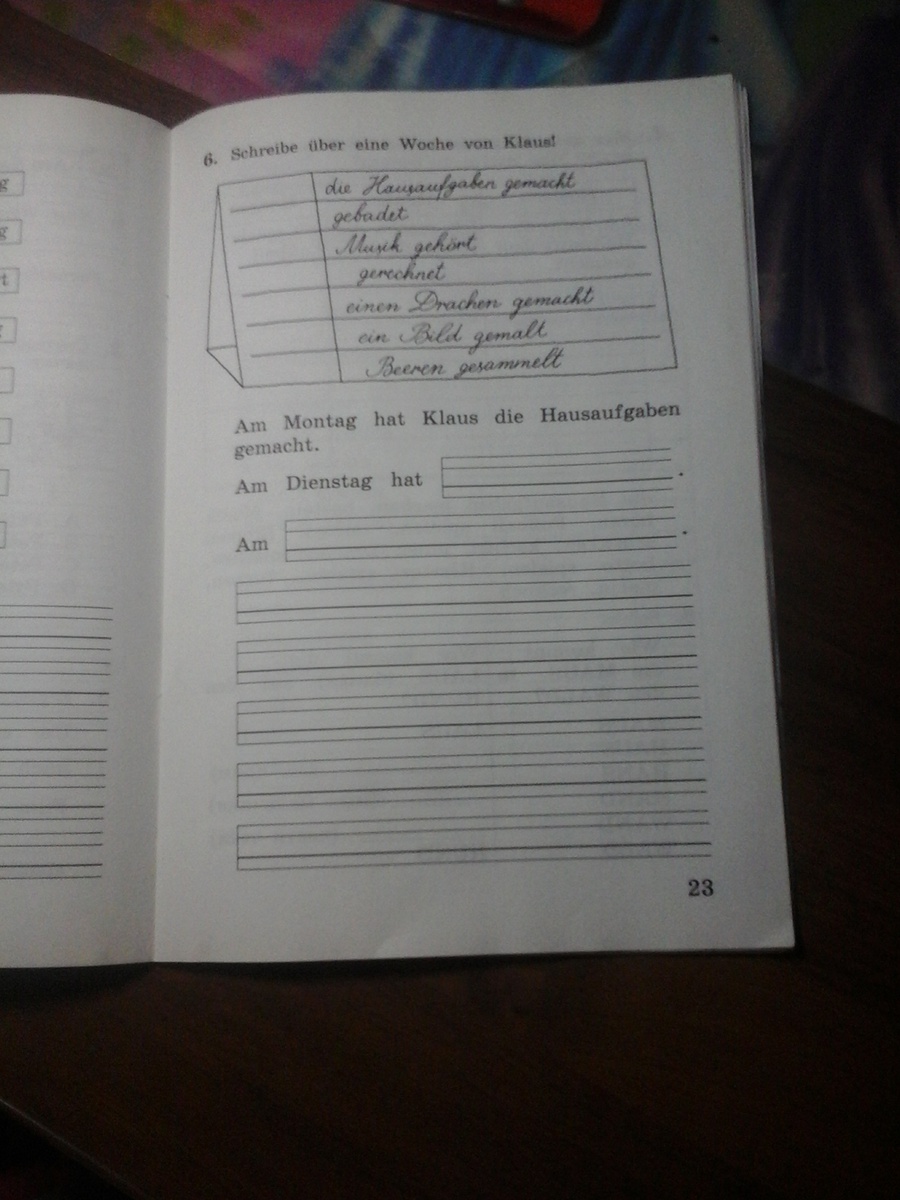 6. Schreibe über eine Woche von Klaus!
die Hausaufgaben gemacht
gebadet
Musik gehört
gerechnet
einen Drachen gemacht
ein Bild gemalt
Beeren gesammelt
Am Montag hat Klaus die Hausaufgaben
gemacht.
Am Dienstag hat .
Am .
23